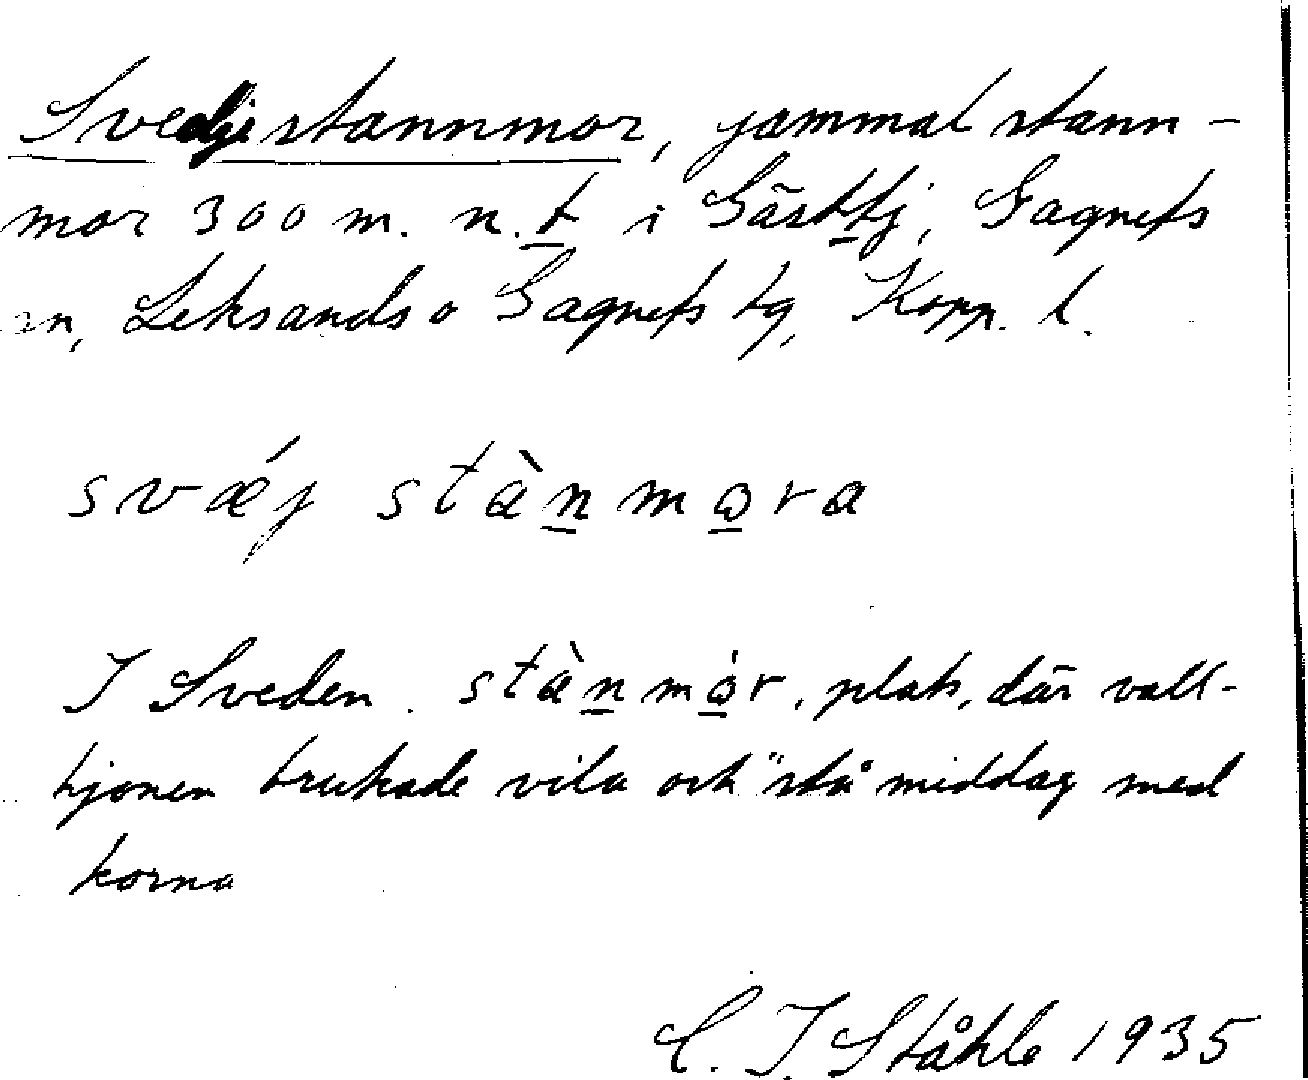 Svedjestannmor, gammal stann-
mor 300 m. n.t i Gästtj, Gagnefs
sn, Leksands o Gagnefs tg, Kopp. l.
svǽj stànmora
I Sveden. stànmór, plats, där vall-
hjonen brukade vila och "stå" middag med
korna
C. I. Ståhle 1935